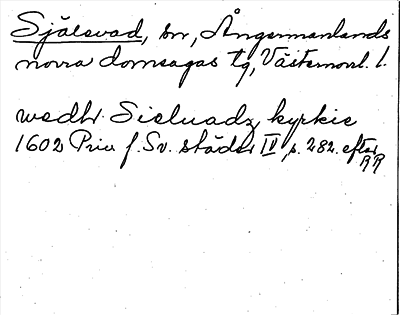 Själevad, sn, Ångermanlands
norra domsagas tg, Västernorrl. l.
wedhr Sieluadz kyrkie
1602 Priv f. Sv. städer IV, s. 282. efter
RR